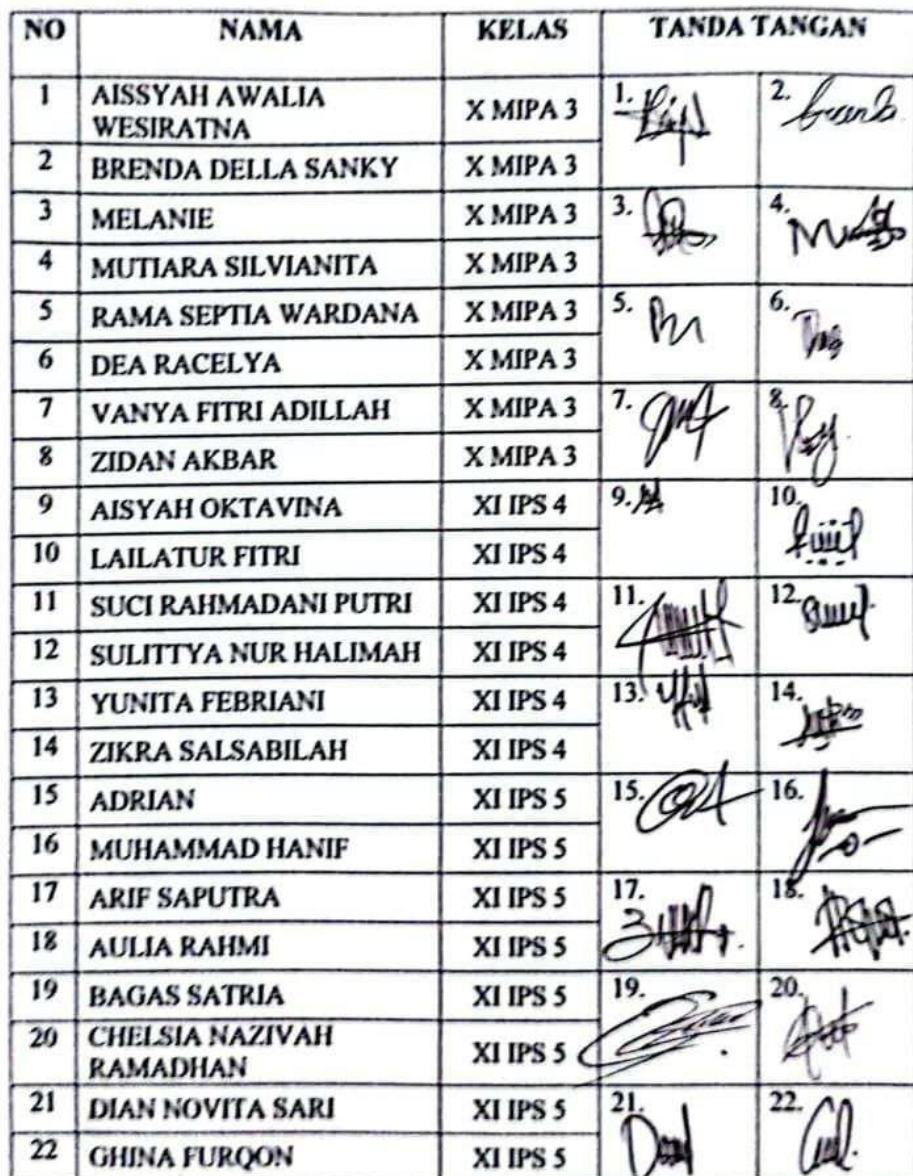 NO NAMA KELAS TANDA TANGAN
1 AISSYAH AWALIA WESIRATNA X MIPA 3 1. 2.
2 BRENDA DELLA SANKY X MIPA 3
3 MELANIE X MIPA 3 3. 4.
4 MUTIARA SILVIANITA X MIPA 3
5 RAMA SEPTIA WARDANA X MIPA 3 5. 6.
6 DEA RACELYA X MIPA 3
7 VANYA FITRI ADILLAH X MIPA 3 7. 8.
8 ZIDAN AKBAR X MIPA 3
9 AISYAH OKTAVINA XI IPS 4 9. 10.
10 LAILATUR FITRI XI IPS 4
11 SUCI RAHMADANI PUTRI XI IPS 4 11. 12.
12 SULITTYA NUR HALIMAH XI IPS 4
13 YUNITA FEBRIANI XI IPS 4 13. 14.
14 ZIKRA SALSABILAH XI IPS 4
15 ADRIAN XI IPS 5 15. 16.
16 MUHAMMAD HANIF XI IPS 5
17 ARIF SAPUTRA XI IPS 5 17. 18.
18 AULIA RAHMI XI IPS 5
19 BAGAS SATRIA XI IPS 5 19. 20.
20 CHELSIA NAZIVAH RAMADHAN XI IPS 5
21 DIAN NOVITA SARI XI IPS 5 21. 22.
22 GHINA FURQON XI IPS 5